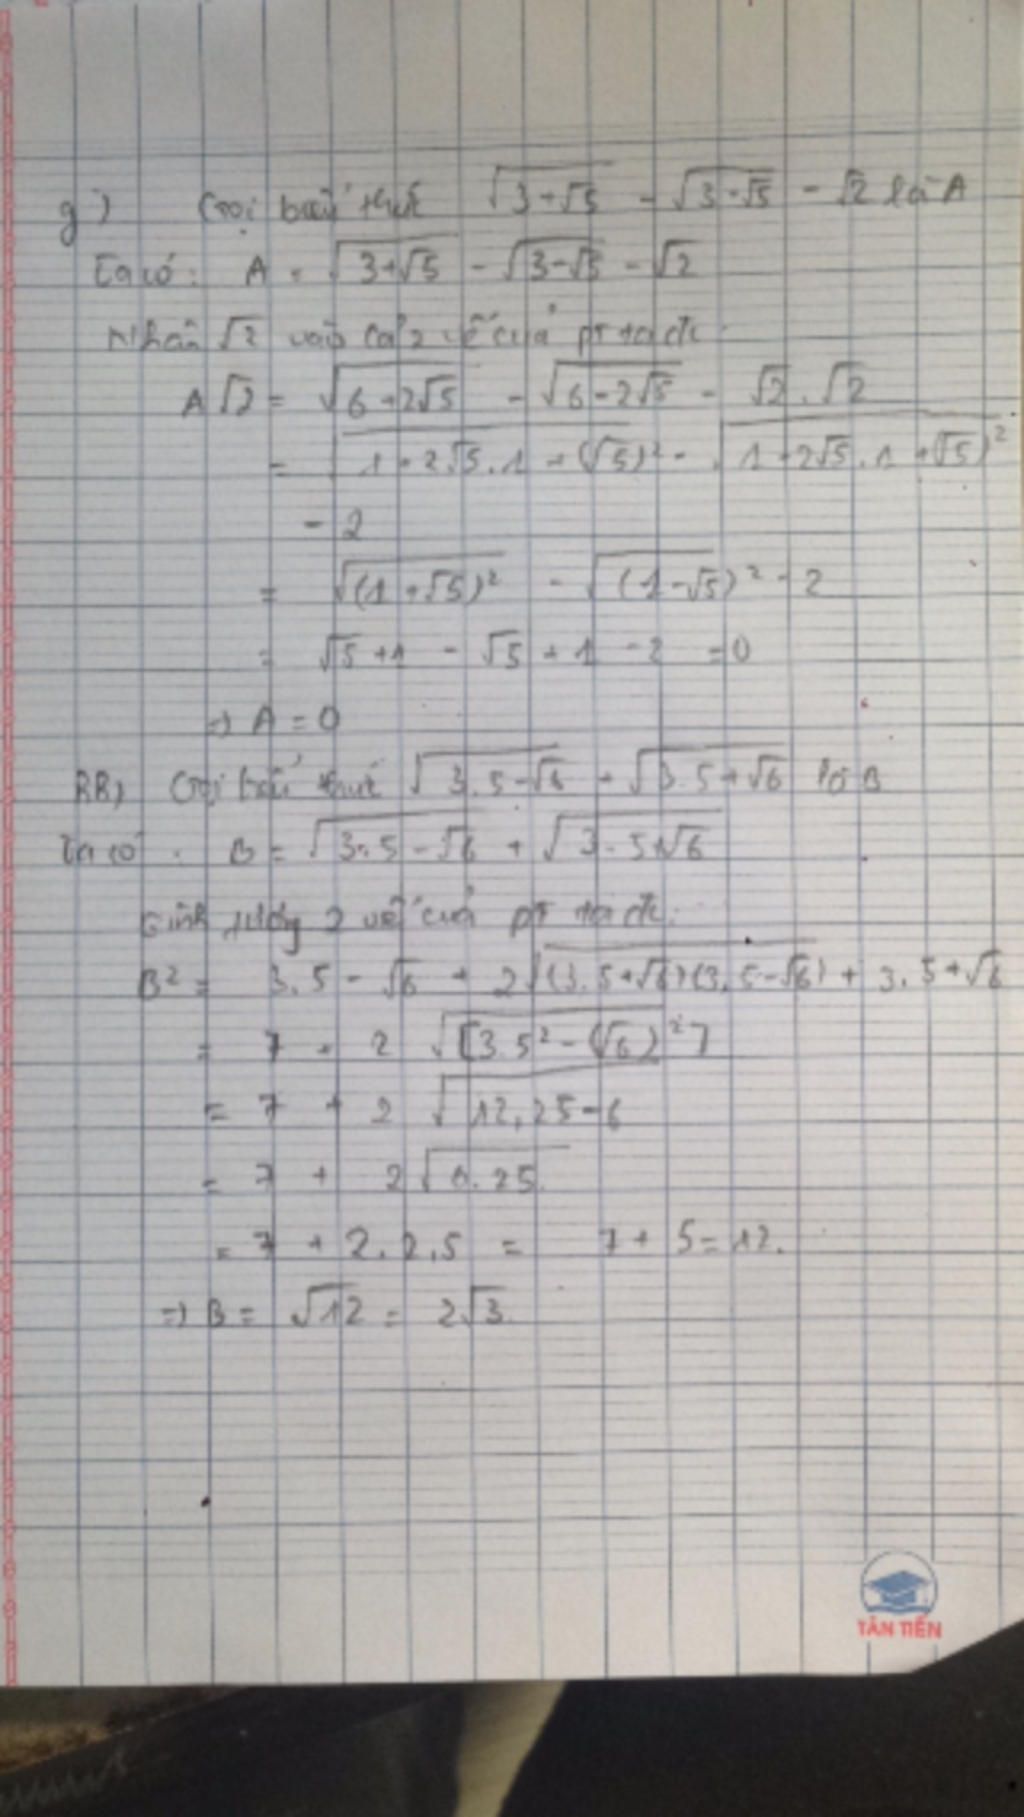 g) Gọi biểu thức √(3+√5) - √(3-√5) - √2 là A
Ta có: A = √(3+√5) - √(3-√5) - √2
Nhân √2 vào cả 2 vế của pt ta đc:
A√2 = √(6+2√5) - √(6-2√5) - √2.√2
= √(1+2√5.1+(√5)²) - √(1-2√5.1+(√5)²)
- 2
= √((1+√5)²) - √((1-√5)²) - 2
= √5+1 - √5+1 - 2 = 0
=> A = 0
Gọi biểu thức √(3.5-√6) + √(3.5+√6) là B
Ta có: B = √(3.5-√6) + √(3.5+√6)
2 vế của pt ta đc:
B² = 3.5 - √6 + 2√((3.5+√6)(3.5-√6)) + 3.5+√6
= 7 + 2 √[3.5² - (√6)²]
= 7 + 2 √(12,25-6)
= 7 + 2√(6.25)
= 7 + 2.2,5 = 7+5=12.
=> B = √12 = 2√3.
TÂN TIẾN